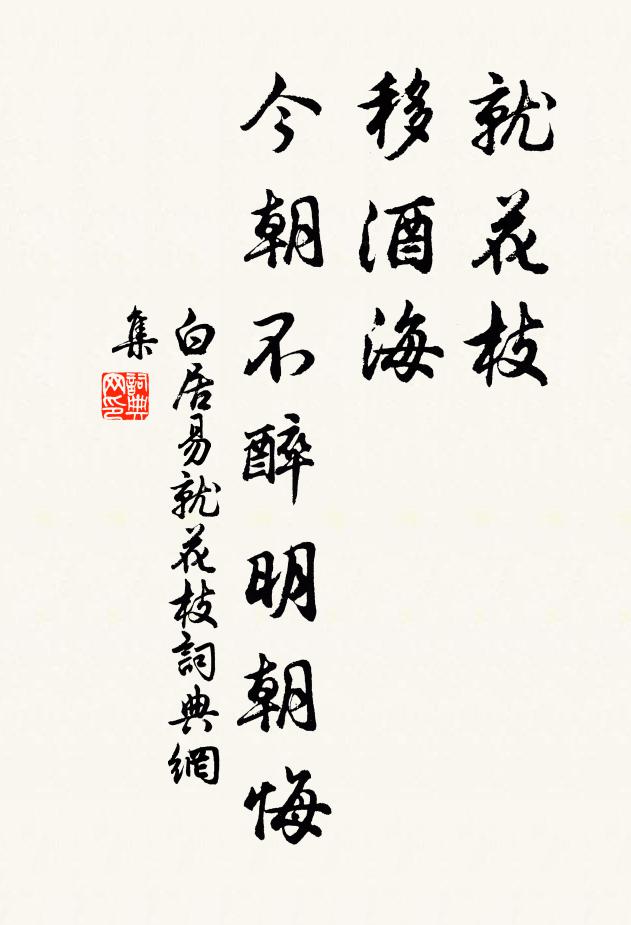 就花枝
移酒海
今朝不醉明朝悔
白居易就花枝詞典網
集
詞典
网印